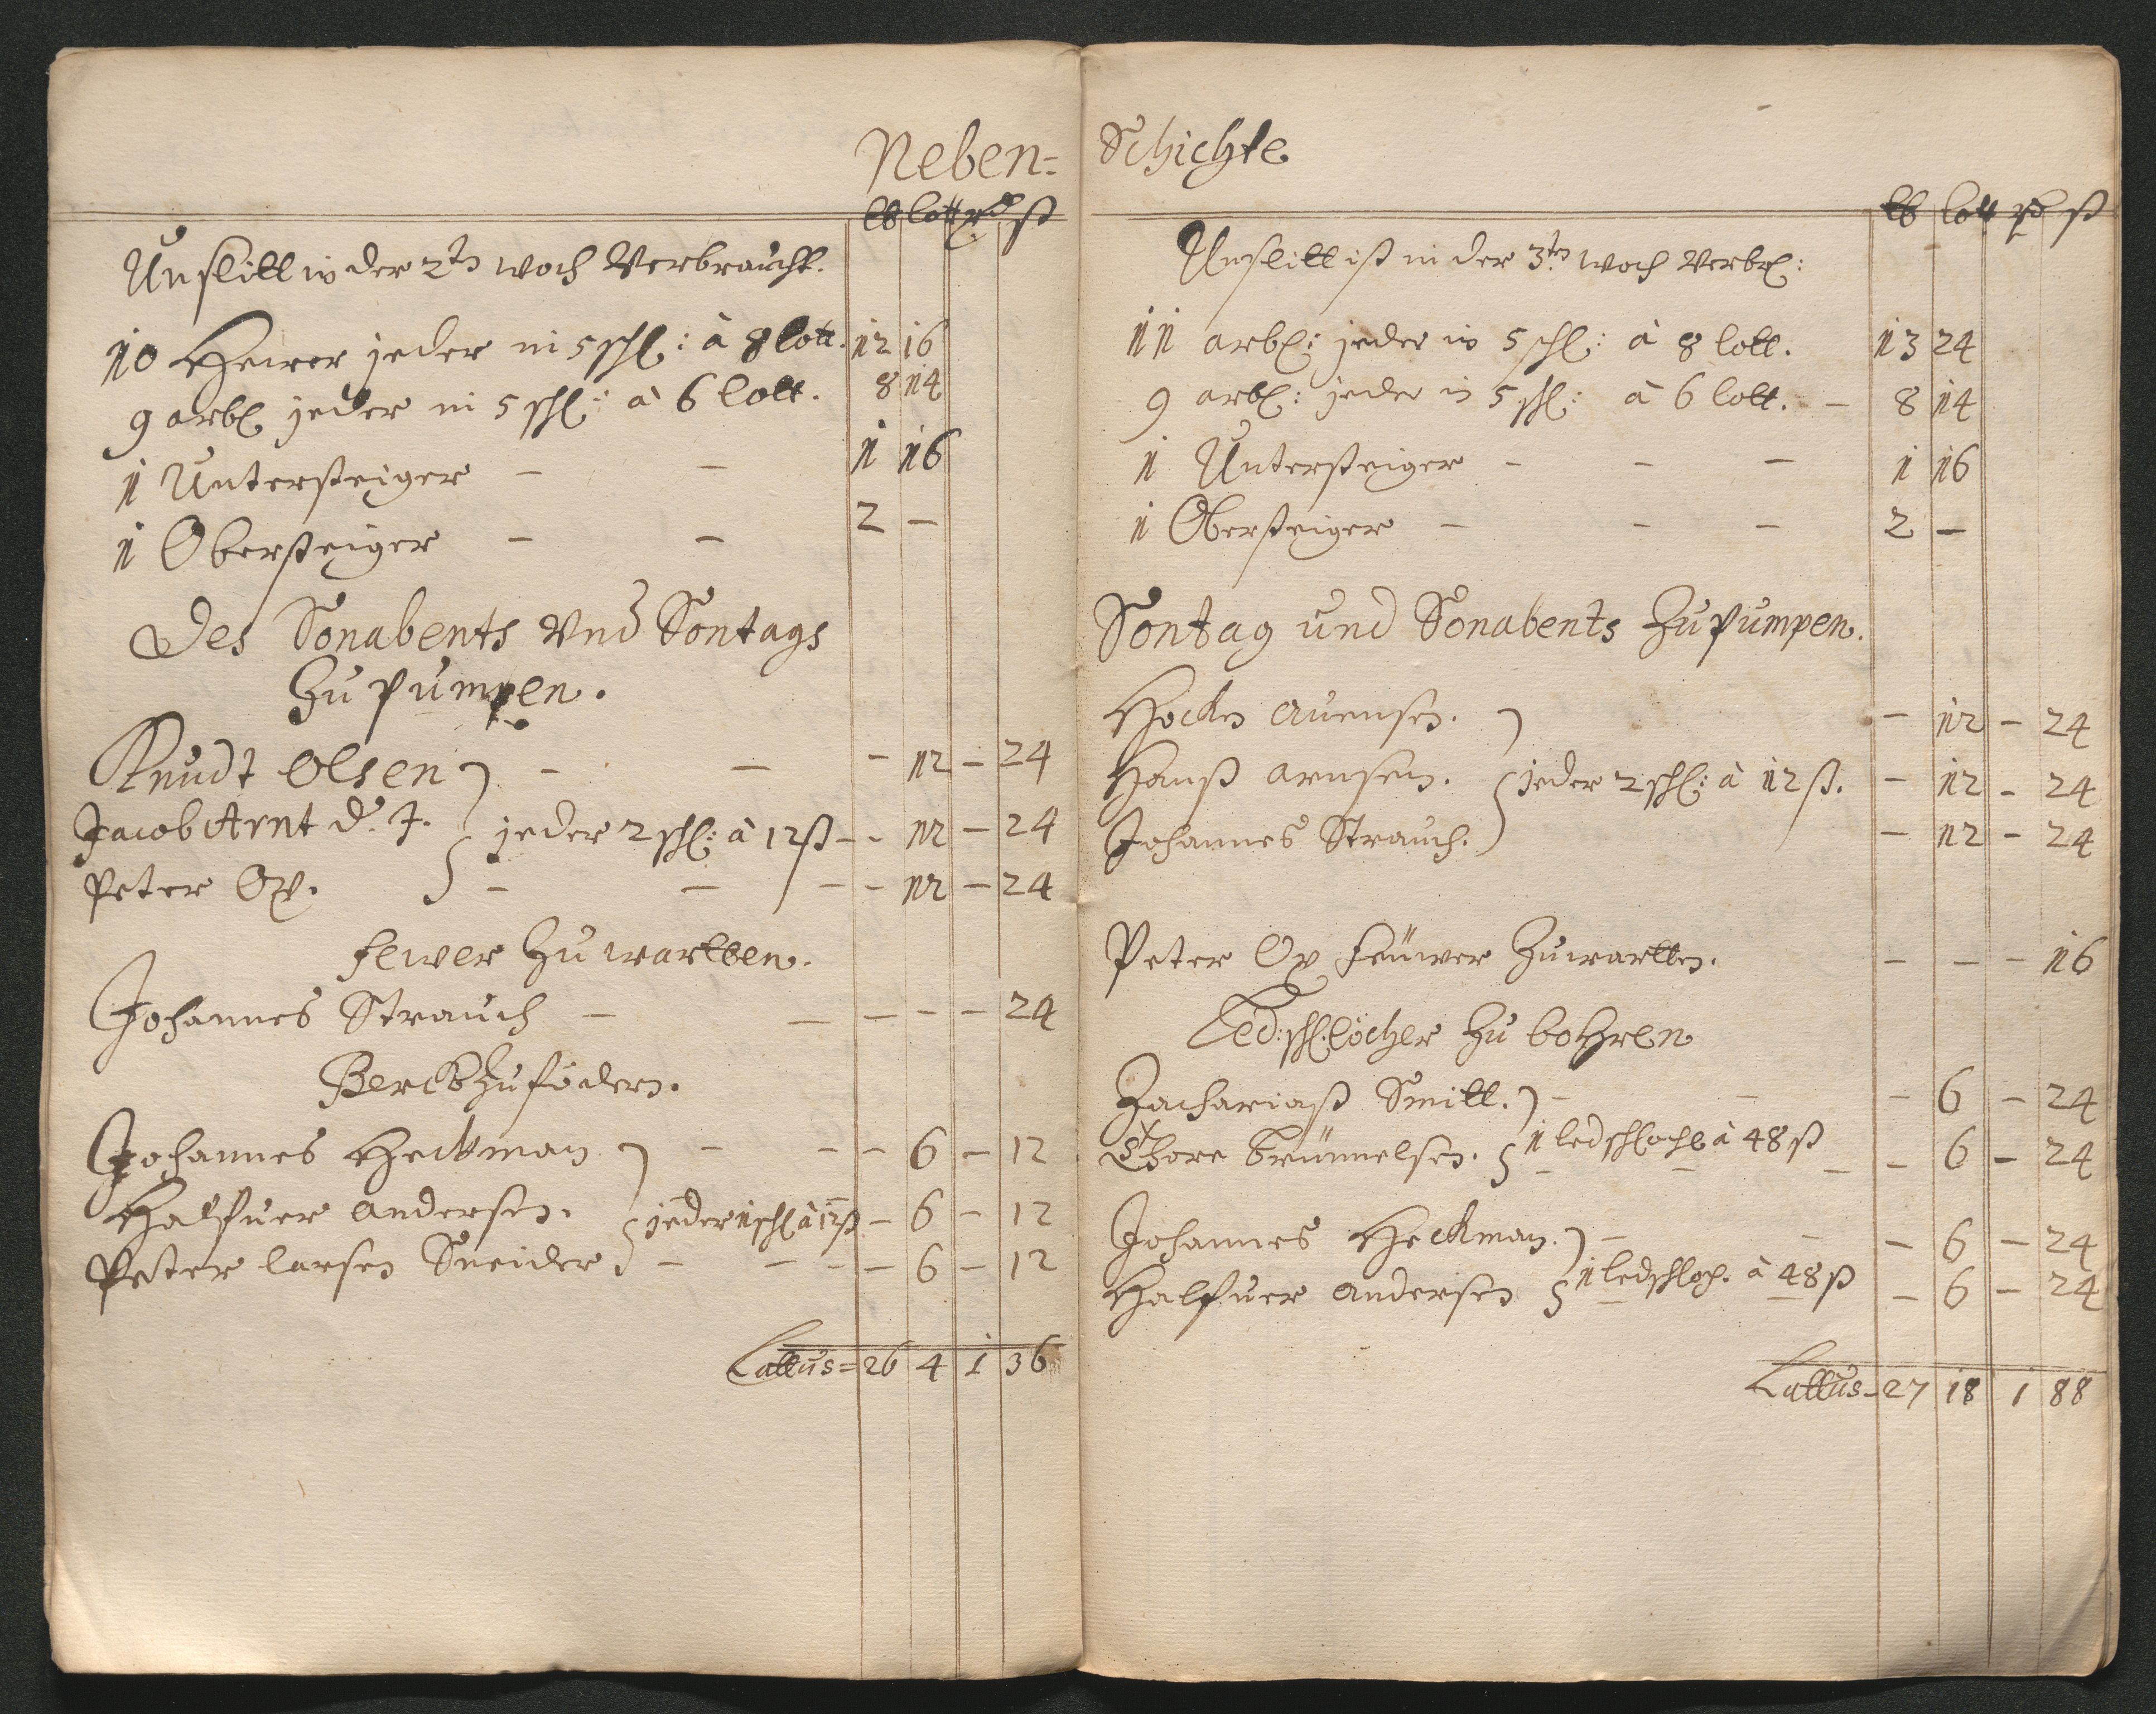 Neben=
lb lott rd ß
Unslitt in der 2ten woch Verbraucht.
10 Hewer jeder in 5 schl: à 8 lott. 12 16
9 arbl jeder in 5 schl: à 6 lott. 8 14
1 Untersteiger - - 1 16
1 Obersteiger - - 2 -
Des Sonabents Vnd Sontags
Zu pumpen.
Knudt Olsen - - - 12 - 24
Jacob Arnt d. J. jeder 2 schl: à 12 ß - - 12 - 24
Peter Ox. - - - - 12 - 24
Fewer Zu wartten.
Johannes Strauch - - - - - 24
Berck Zu födern.
Johannes Heckman - - - 6 - 12
Halfuer Andersen. jeder 1 schl à 12 ß - 6 - 12
Peter larsen Sneider - - - - 6 - 12
Lattus = 26 4 1 36
Schichte
lb lott rd ß
Unslitt ist in der 3ten woch Verbr:
11 arbl: jeder in 5 schl: à 8 lott. 13 24
9 arbl: jeder in 5 schl: à 6 lott. - 8 14
1 Untersteiger - - - 1 16
1 Obersteiger - - - 2 -
Sontag und Sonabents Zu pumpen.
Auensen. - 12 - 24
Hanß Arnsen. jeder 2 schl: à 12 ß. - 12 - 24
Johannes Strauch. - 12 - 24
Peter Ox Feüwer Zu wartten. - - - 16
Led: schl: löcher Zu bohren
Zachariaß Smitt. - - - 6 - 24
Thore 1 ledschloch à 48 ß - - 6 - 24
Johannes Heckman. - - - 6 - 24
Halfuer Andersen 1 ledschloch. à 48 ß - 6 - 24
Lattus - 27 18 1 88